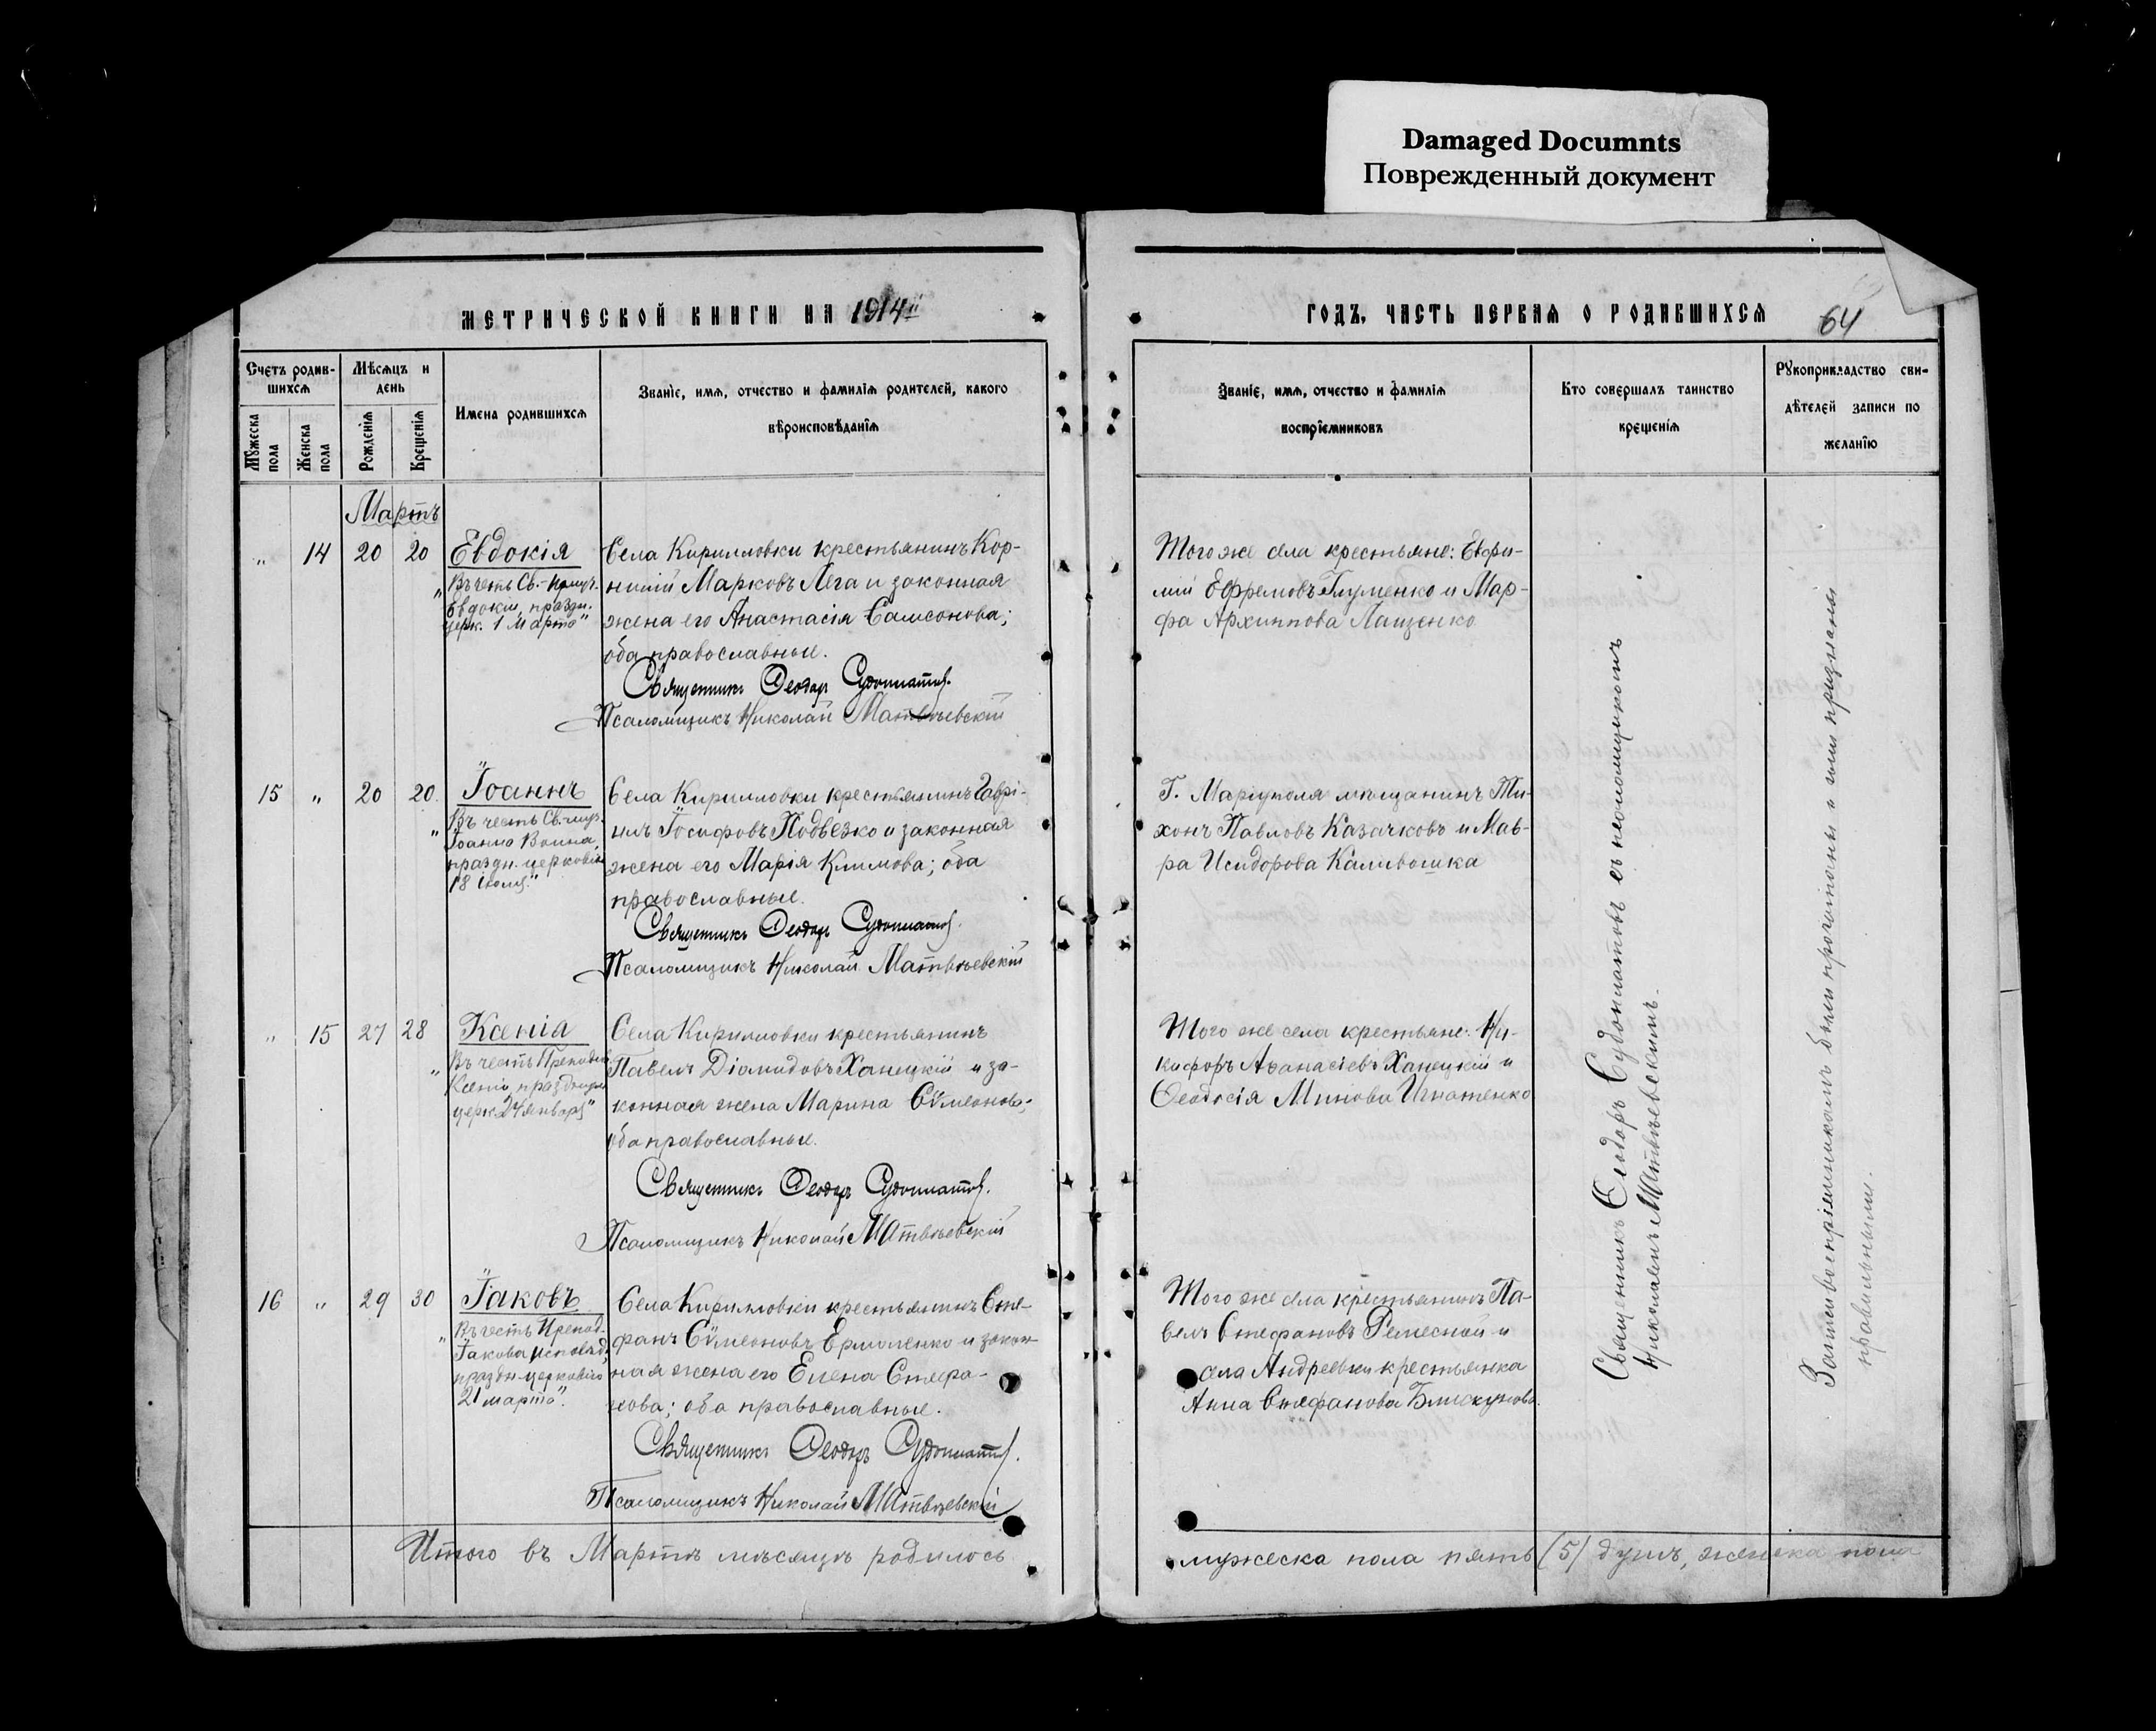 Damaged Documnts
Поврежденный документ
МЕТРИЧЕСКОЙ КНИГИ НА 1914й
ГОДЪ, ЧАСТЬ ПЕРВАЯ О РОДИВШИХСЯ
64
Счетъ родив-
шихся
Мужеска
пола
Женска
пола
Мѣсяцъ и
день
Рожденія
Крещенія
Имена родившихся
Званіе, имя, отчество и фамилія родителей, какого
вѣроисповѣданія
Званіе, имя, отчество и фамилія
воспріемниковъ
Кто совершалъ таинство
крещенія
Рукоприкладство сви-
дѣтелей записи по
желанію
Мартъ
" 14 20 20
Евдокія
"Въ честь Св.-
Евдокіи, праздн.
церк. 1 Марта"
Села Кирилловки крестьянинъ Кор-
нилій Марковъ Лега и законная
жена его Анастасія Самсонова;
оба православные.
Священникъ Ѳеодоръ Судоплатовъ.
Псаломщикъ Николай Матвѣевскій
Того же села крестьяне: Евфи-
мій Ефремовъ Глуменко и Мар-
фа Архиппова Лащенко
15 " 20 20.
Іоаннъ
"Въ честь Св.-муч.
Іоанна Воина,
праздн. церковію
18 іюля."
Села Кирилловки крестьянинъ Гаврі-
илъ Іосифовъ Подвезко и законная
жена его Марія Климова; оба
православные.
Священникъ Ѳеодоръ Судоплатовъ.
Псаломщикъ Николай Матвѣевскій
Г. Маріуполя мѣщанинъ Ти-
хонъ Павловъ Казачковъ и Мав-
ра Исидорова Каливошка
" 15 27 28
Ксенія
"Въ честь Преподоб.
Ксеніи, празднуем.
церк. 24 января"
Села Кирилловки крестьянинъ
Павелъ Діомидовъ Ханецкій и за-
конная жена Марина Сѵмеонова;
оба православные.
Священникъ Ѳеодоръ Судоплатовъ.
Псаломщикъ Николай Матвѣевскій
Того же села крестьяне: Ни-
кифоръ Аѳанасіевъ Ханецкій и
Ѳеодосія Минова Игнатенко
16 " 29 30
Іаковъ
"Въ честь Препод.
Іакова исповѣд.,
праздн. церковію
21 марта".
Села Кирилловки крестьянинъ Сте-
фанъ Сѵмеоновъ Ермоленко и закон-
ная жена его Елена Стефа-
нова; оба православные.
Священникъ Ѳеодоръ Судоплатовъ.
Псаломщикъ Николай Матвѣевскій
Того же села крестьянинъ Па-
велъ Стефановъ Ремесной и
села Андреевки крестьянка
Анна Стефанова Блискунова.
Священникъ Ѳеодоръ Судоплатовъ съ псаломщикомъ
Николаемъ Матвѣевскимъ.
Записи воспріемникамъ были прочитаны и ими признаны
правильными.
Итого въ Мартѣ мѣсяцѣ родилось
мужеска пола пять (5) душъ, женска пола